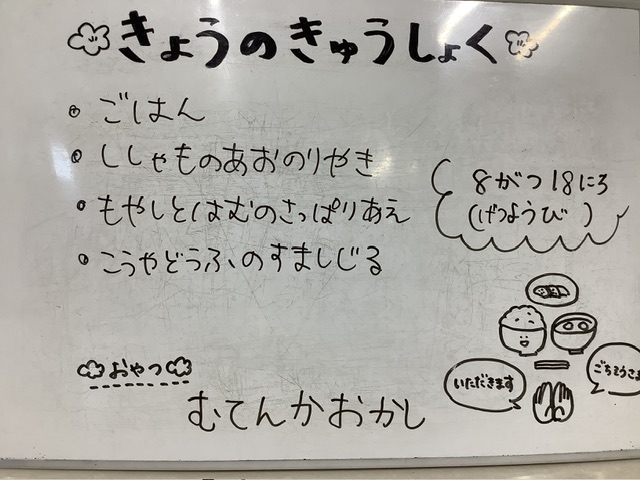 きょうのきゅうしょく
ごはん
ししゃものあおのりやき
もやしとはむのさっぱりあえ
こうやどうふのすましじる
8がつ18にち
(げつようび)
おやつ
むてんかおかし
いただきます
ごちそうさま